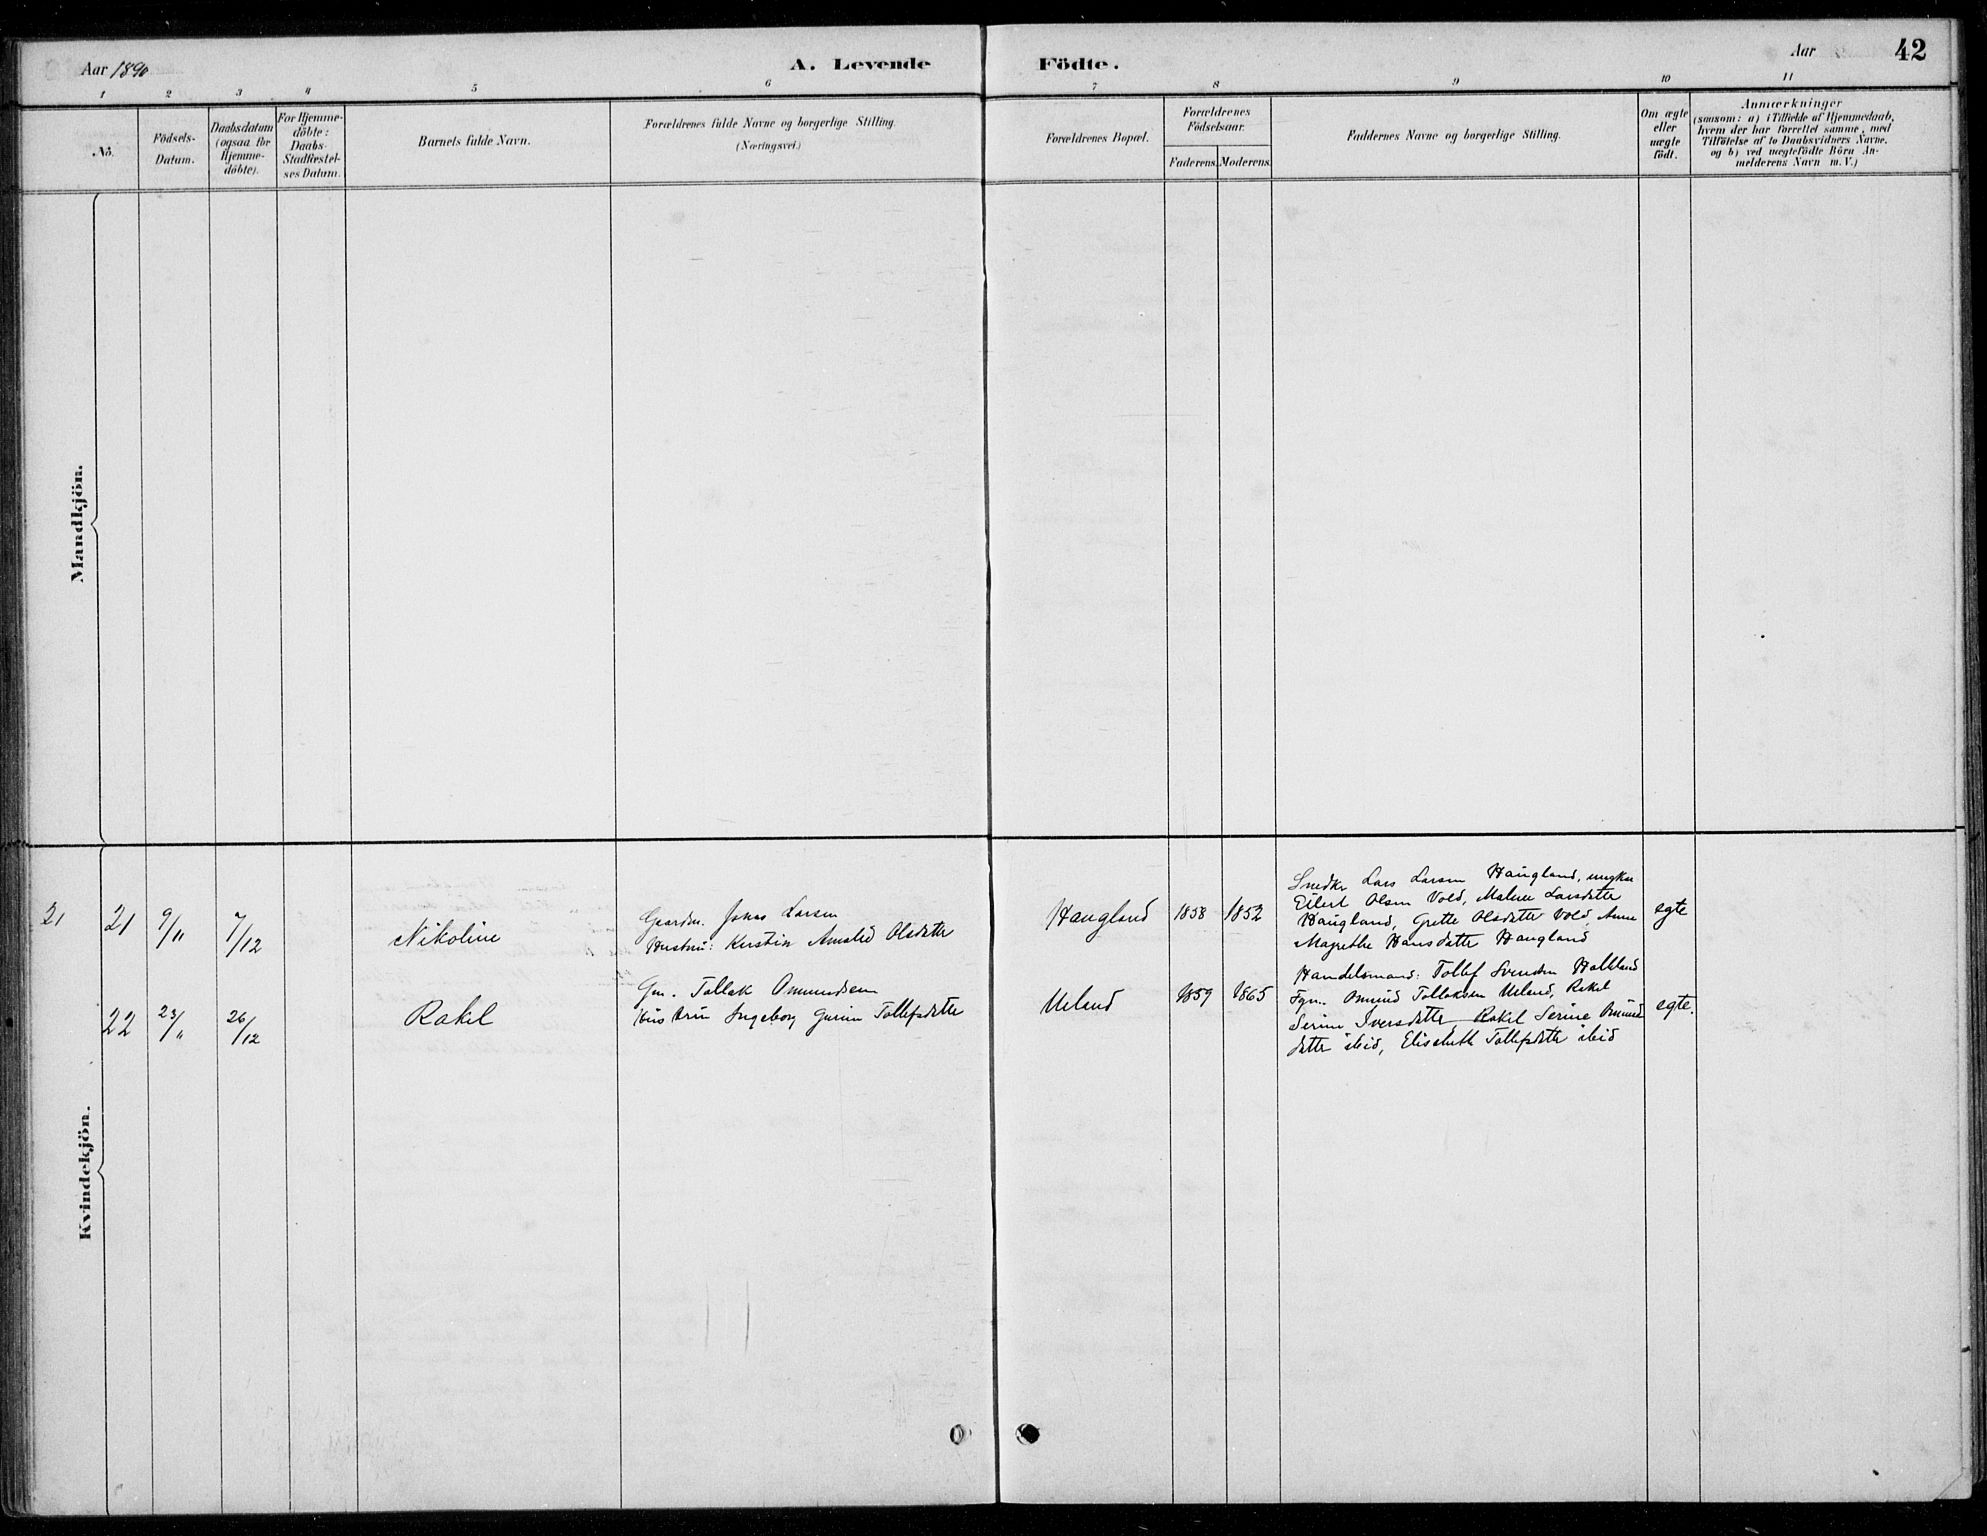 Aar 1890
A. Levende Födte.
Aar
42
1 2 3 4 5 6 7 8 9 10 11
No.
Födsels-
Datum.
Daabsdatum
(ogsaa for
Hjemme-
döbte).
For Hjemme-
döbte:
Daabs-
Stadfæstel-
ses Datum.
Barnets fulde Navn.
Forældrenes fulde Navne og borgerlige Stilling
(Næringsvei.)
Forældrenes Bopæl.
Forældrenes
Födselsaar.
Faderens. Moderens.
Faddernes Navne og borgerlige Stilling.
Om ægte
eller
uægte
födt.
Anmærkninger
(saasom: a) i Tilfælde af Hjemmedaab,
hvem der har forrettet samme, med
Tilföielse af to Daabsvidners Navne.
og b) ved uægtefödte Börn An-
melderens Navn m.V.)
Mandkjön.
Kvindekjön.
21 21 9/11 7/12
Nikoline
Gaardm. Jonas Larsen
Hustru: Kerstin Amalie Olsdatter
Haugland
1858 1852
Snedker Lars Larsen Haugland, ungkar
Eilert Olsen Vold, Malene Larsdatter
Haugland, Grette Olsdatter Vold, Anne
Magrethe Hansdatter Haugland
egte
22 23/11 26/12
Rakel
Gm. Tollak Omundsen
Hustru Ingeborg Gurine Tollefsdatter
Ueland
1859 1865
Handelsmand: Tollef Svendsen
Omund Tollaksen Ueland, Rakel
Serine Iversdatter Rakel Serine Omund
datter ibid, Elisabeth Tollefsdatter ibid
egte.